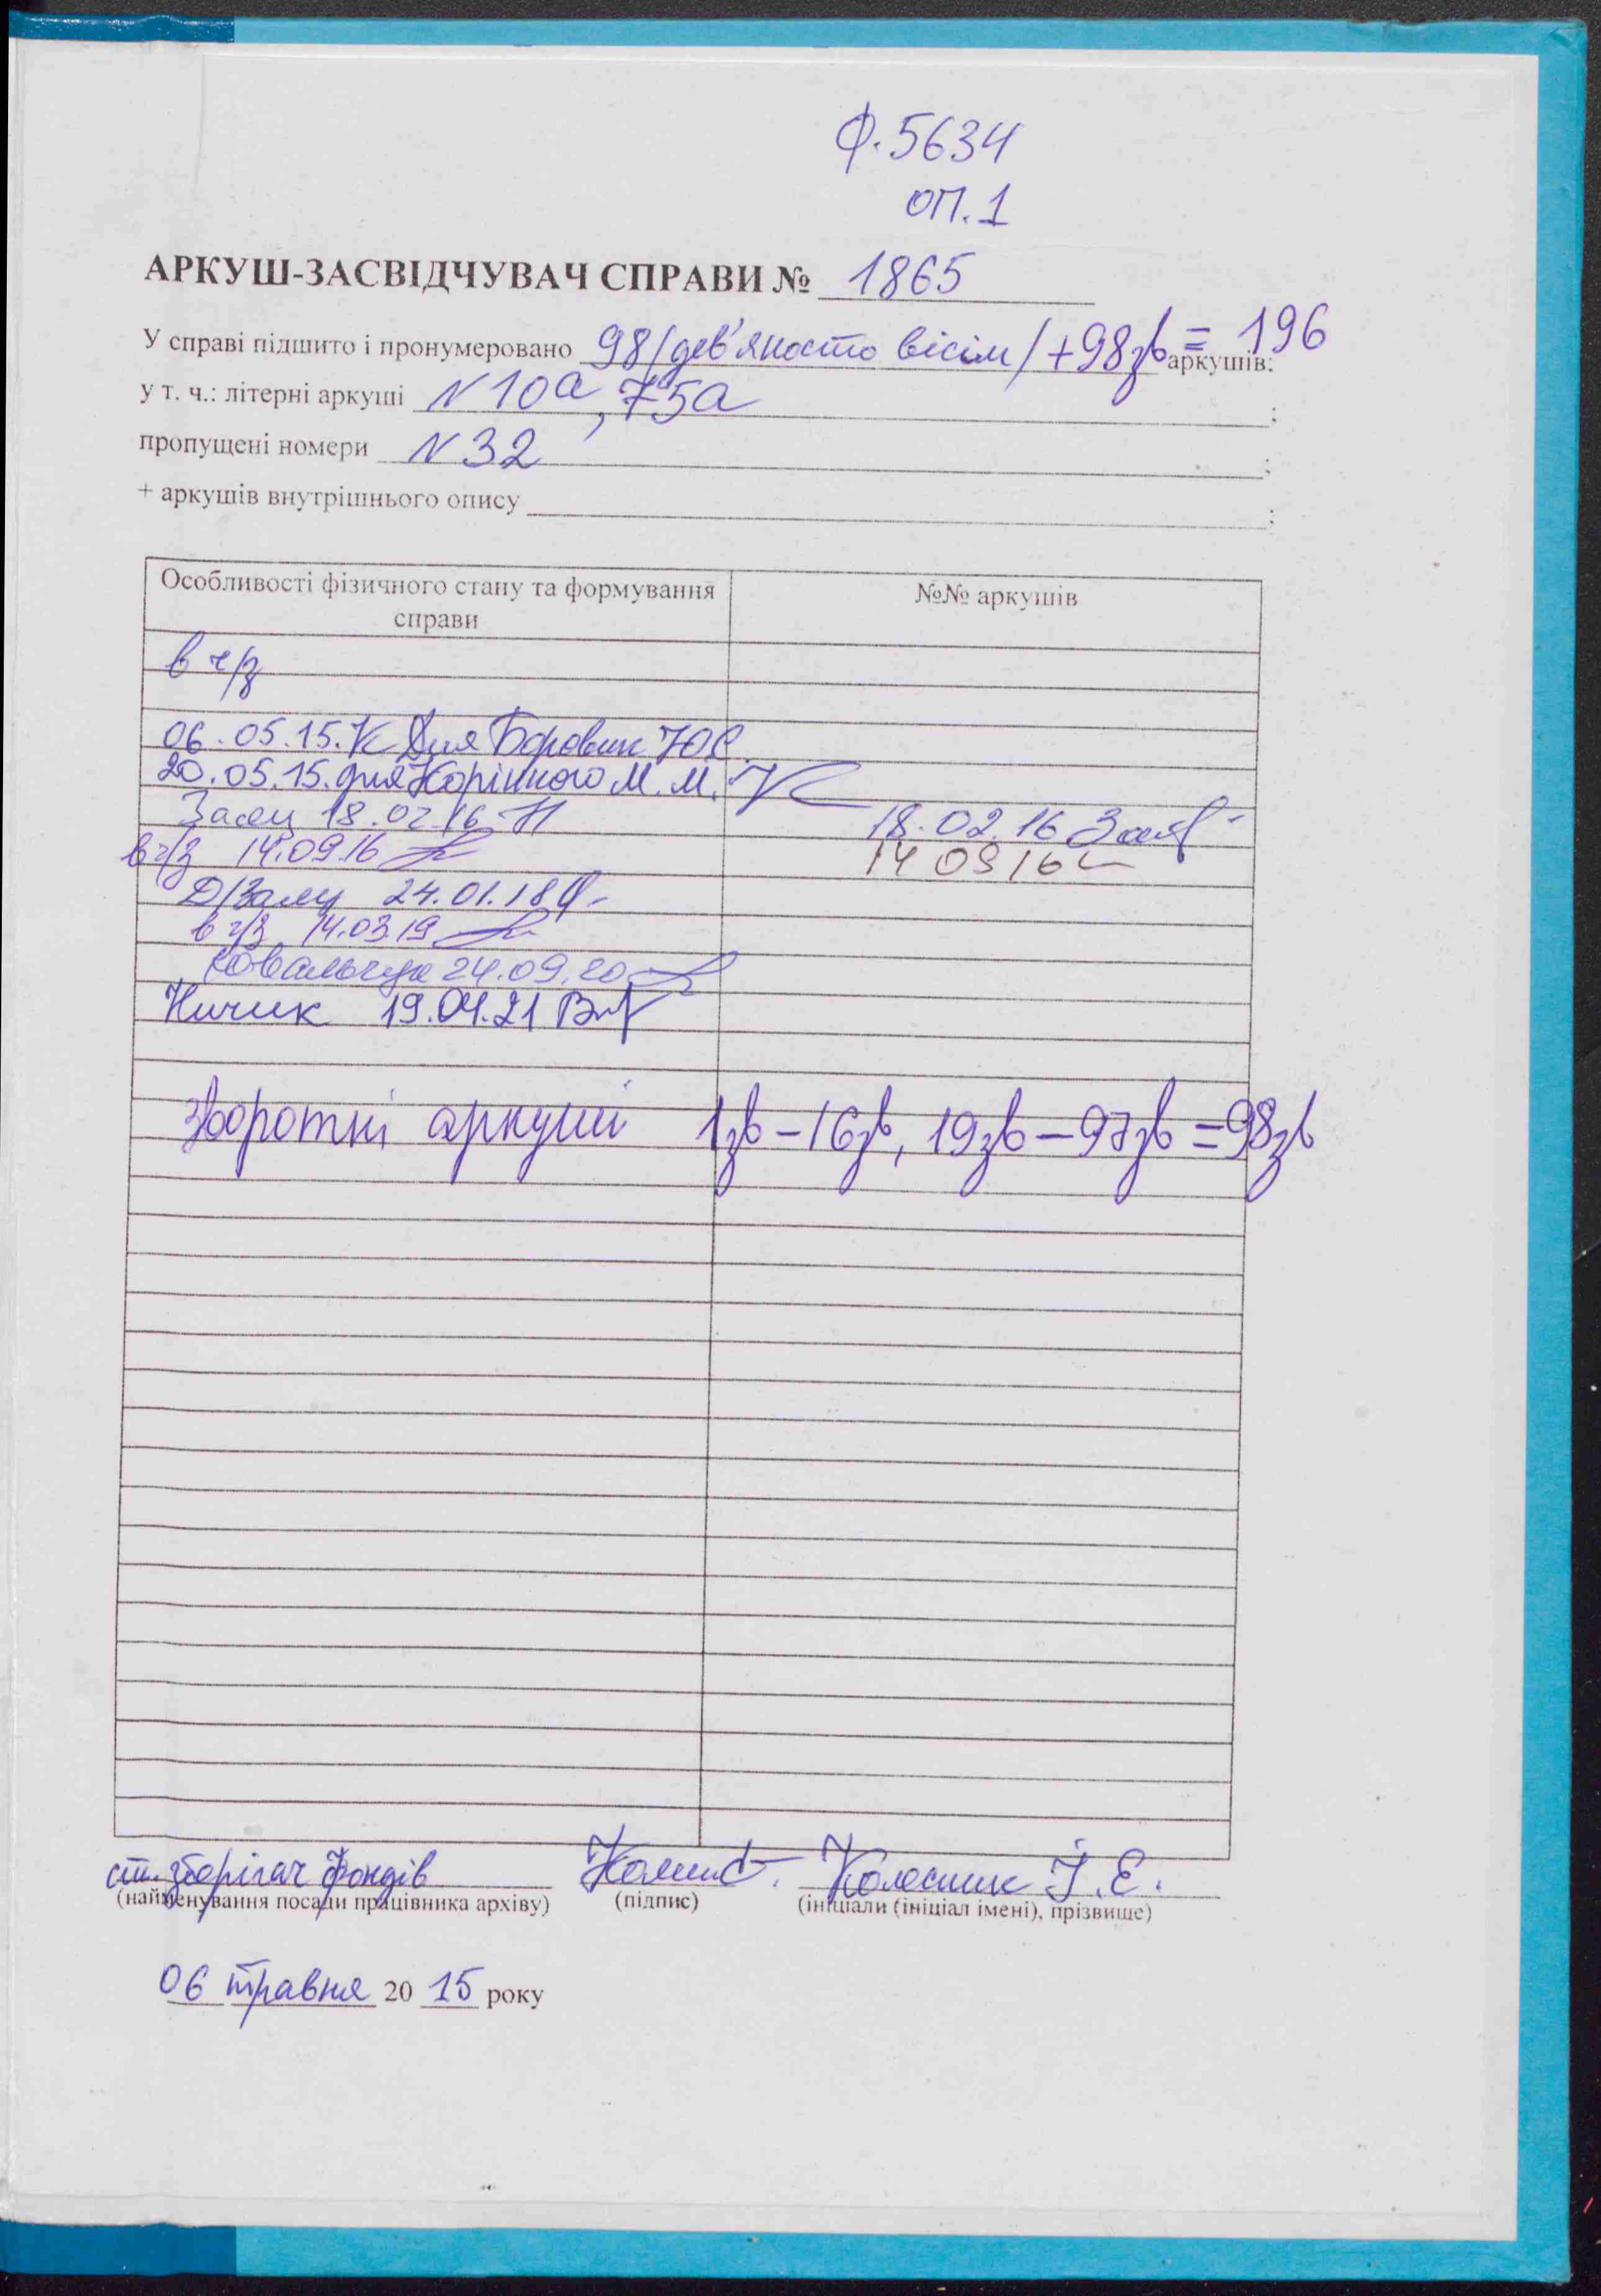 Ф. 5634
оп. 1
АРКУШ-ЗАСВІДЧУВАЧ СПРАВИ № 1865
У справі підшито і пронумеровано 98 /дев'яносто вісім/ +98зв = 196 аркушів;
у т. ч.: літерні аркуші N 10а, 75а ;
пропущені номери N 32 ;
+ аркушів внутрішнього опису ;
Особливості фізичного стану та формування справи
№№ аркушів
в ч/з
06.05.15. Для Боровик Ю
20.05.15. для Корінного М. М.
18.02.16
18.02.16
в ч/з 14.09.16
14 09 16
24.01.18
в ч/з 14.03.19
Ковальчук 24.09.20
Ничик 19.04.21
Зворотні аркуші 1зв – 16зв, 19зв – 97зв = 98зв
ст. зберігач фондів Колесник І. Е.
(найменування посади працівника архіву) (підпис) (ініціали (ініціал імені), прізвище)
06 травня 20 15 року